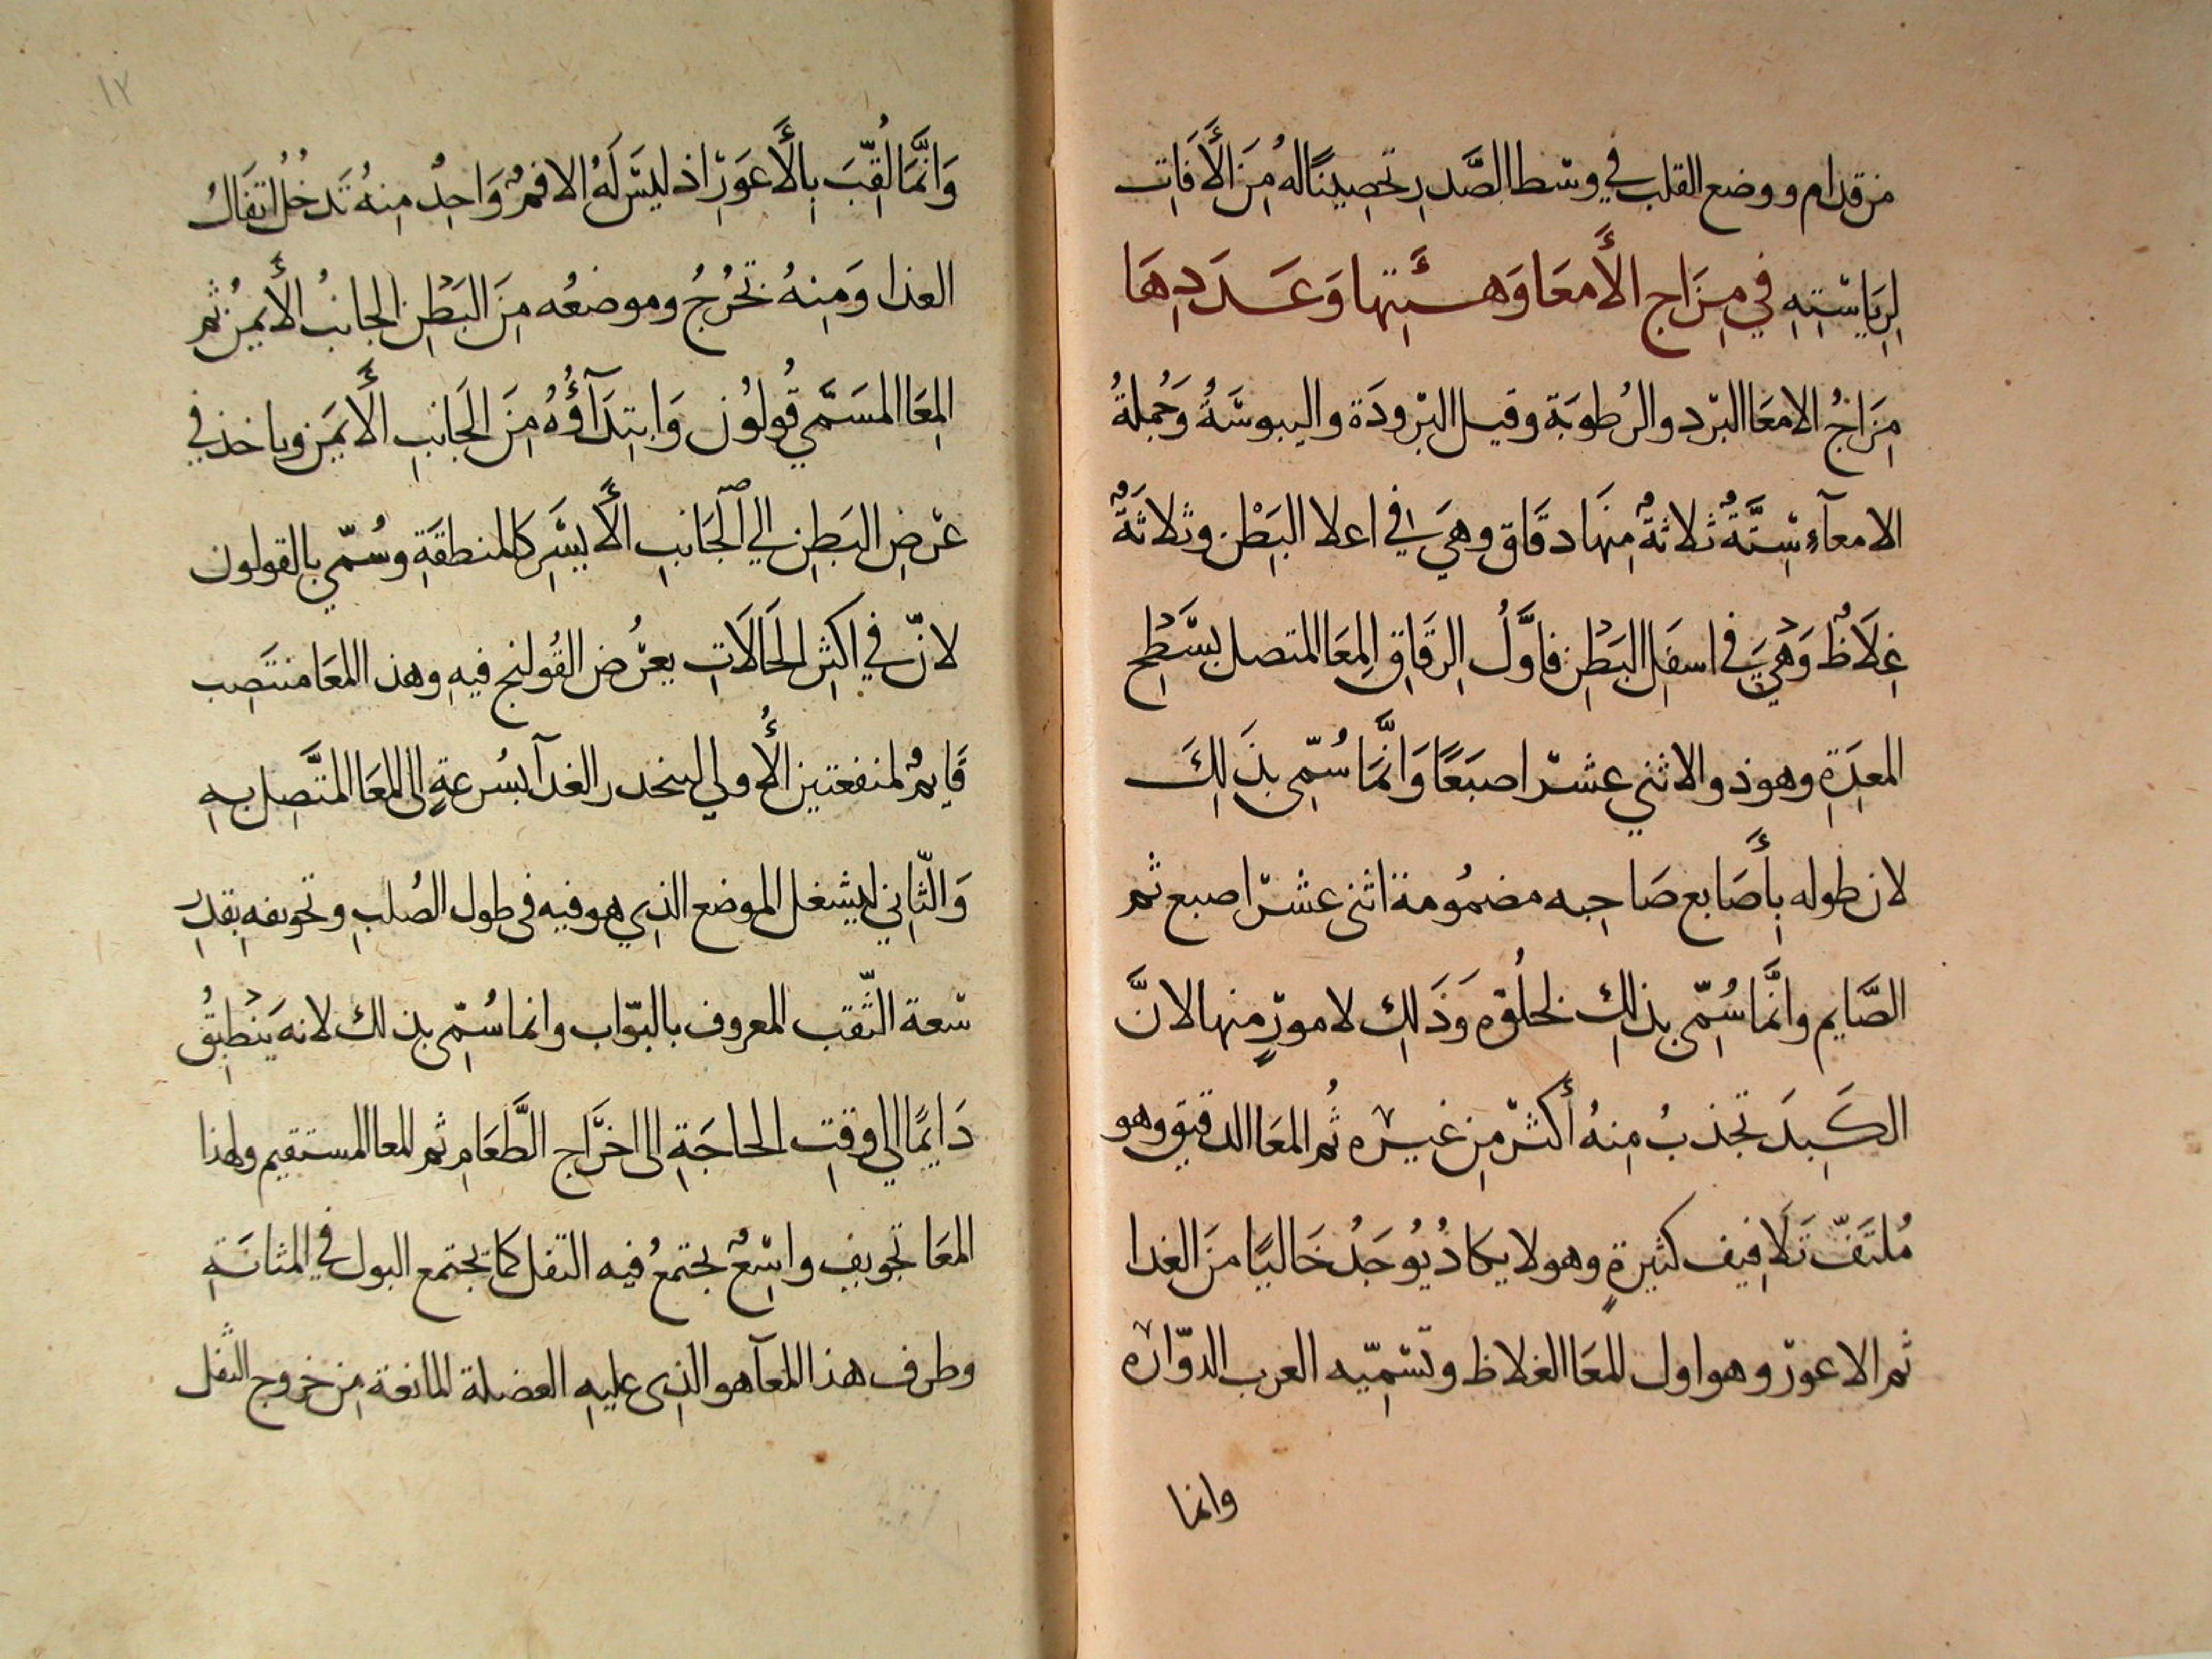 من قدام ووضع القلب في وسط الصَّدرِ تحصِينًا لهُ مِنَ الأَفَاتِ
لِرِيَاسَتِهِ في مِزَاجِ الأَمعَا وَهيئَتِها وَعَدَدِهَا
مِزَاجُ الامعَا البرد والرُطوبَة وقيل البرودَة واليبوسَةُ وَجُملةُ
الامعآءِ سِتَّةٌ ثلاثةٌ مِنهَا دقَاق وهيَ في اعلا البَطْن وثلاثَةٌ
غِلَاظٌ وَهيَ في اسفَلِ البَطْنِ فاوَّلُ الرِقَاقِ المِعَا المتصل بسَطْحِ
المعِدَةِ وهو ذو الاثني عشر اصبَعًا وَانَّمَا سُمِّى بذَلِكَ
لان طوله بِأَصَابع صَاحِبه مضمُومة اثنى عشر اصبع ثم
الصَّايم وانَّما سُمِّى بذلِكَ لخلُوّه وَذَلِكَ لامورٍ منها لانَّ
الكَبِدَ تجذبُ مِنهُ أكثر مِن غيره ثُم المعَا الدقيق وهو
مُلتَفّ تَلَافِيف كثيرةٍ وهو لا يكادُ يُوجَدُ خَاليًا مِنَ الغدا
ثم الاعور وهو اول المعَا الغلاظ وتسَمِّيه العرب الدوّاره
وانما
١٢
وَانَّمَا لُقِّبَ بِالأَعوَرِ اذ ليسَ لَهُ الا فمٌ وَاحِدٌ مِنهُ تَدخُلُ اتفَالُ
الغذا وَمِنهُ تخرُجُ وموضعُه مِنَ البَطْنِ الجانبُ الأَيمنُ ثم
المِعَا المسَمَّي قُولوُن وَابتِدَآؤُهُ مِنَ الجَانبِ الأَيمَنِ وياخذ في
عرْضِ البَطنِ الي الجَانبِ الأَيسَرِ كالمنطقَةِ وسُمّي بالقولون
لانّ في اكثرِ الحَالَاتِ يعرُض القُولنج فيهِ وهذا المعَا منتَصِب
قَايمٌ لمنفعتين الأُولي لينحدر الغدآ بسُرعةٍ الى المعَا المتَّصِل بهِ
وَالثّاني ليشغل الموضع الذي هو فيه في طول الصُلبِ وتجويفه بقدْرِ
سعة الثّقب المعروف بالبوّاب وانما سُمِّى بذلك لانه يَنْطبِقُ
دَايمًا الي وقتِ الحاجَةِ الى اخرَاج الطَّعَامِ ثم المعا المستقيم ولهذا
المعَا تجويف واسِعٌ يجتمعُ فيه التفل كما يجتمع البول في المثانَةِ
وطرف هذا المعآ هو الذي عليهِ العضلة المانعة مِن خروج الثّفل